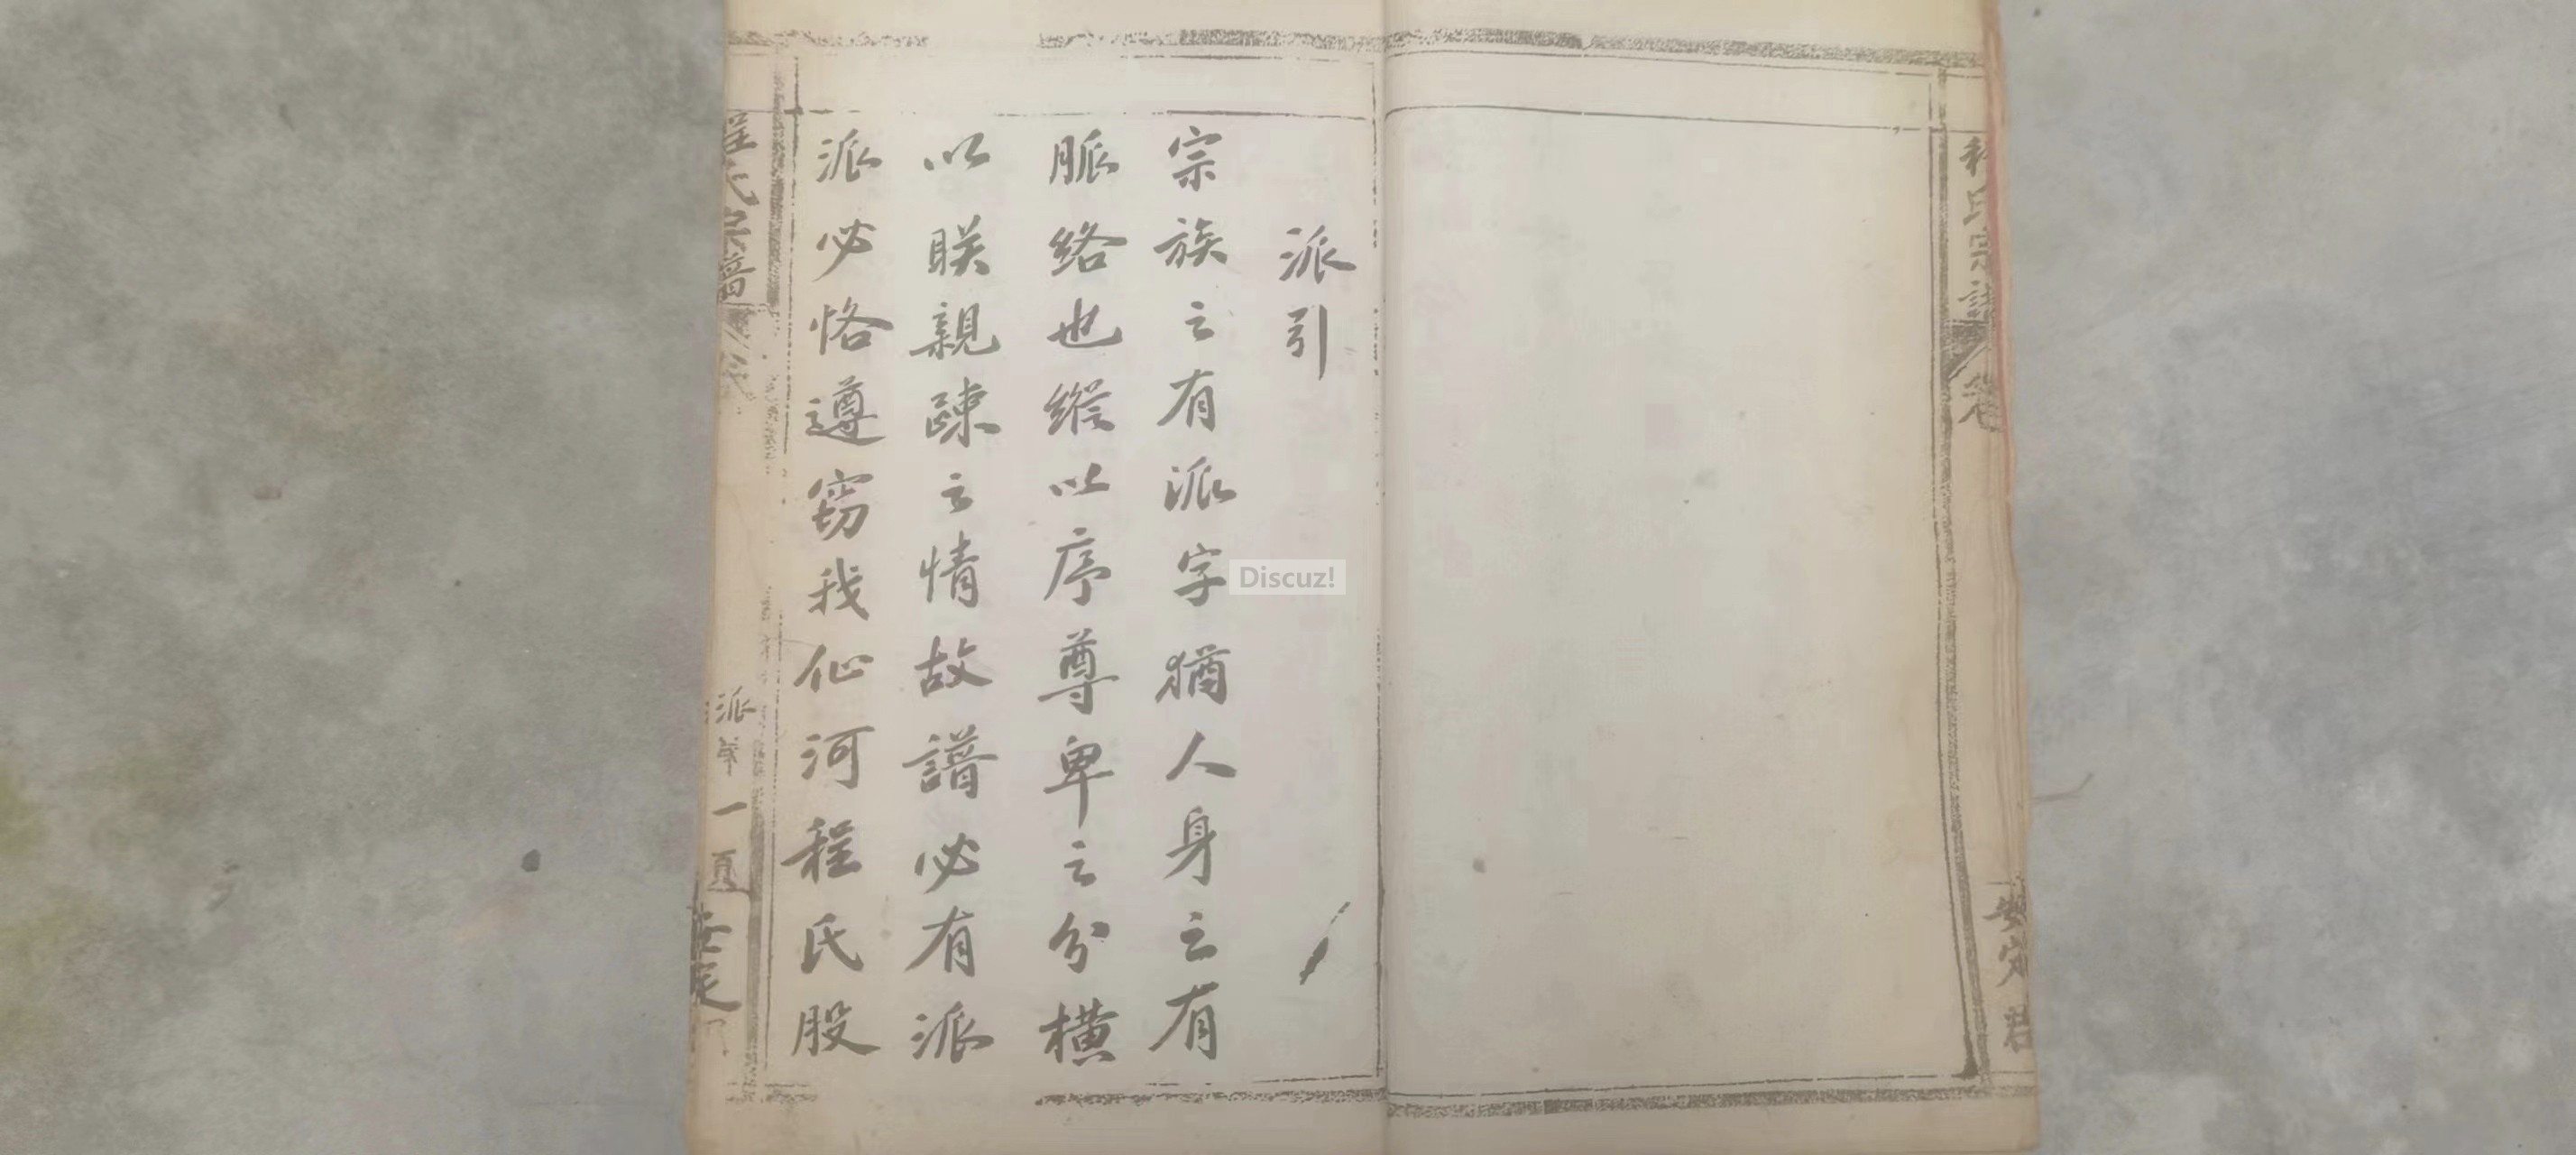 程氏宗譜
卷
安定
派引
宗族之有派字猶人身之有
脈絡也縱以序尊卑之分橫
以聯親疎之情故譜必有派
派必恪遵竊我仙河程氏股
程氏宗譜
派
一頁
安定
Discuz!